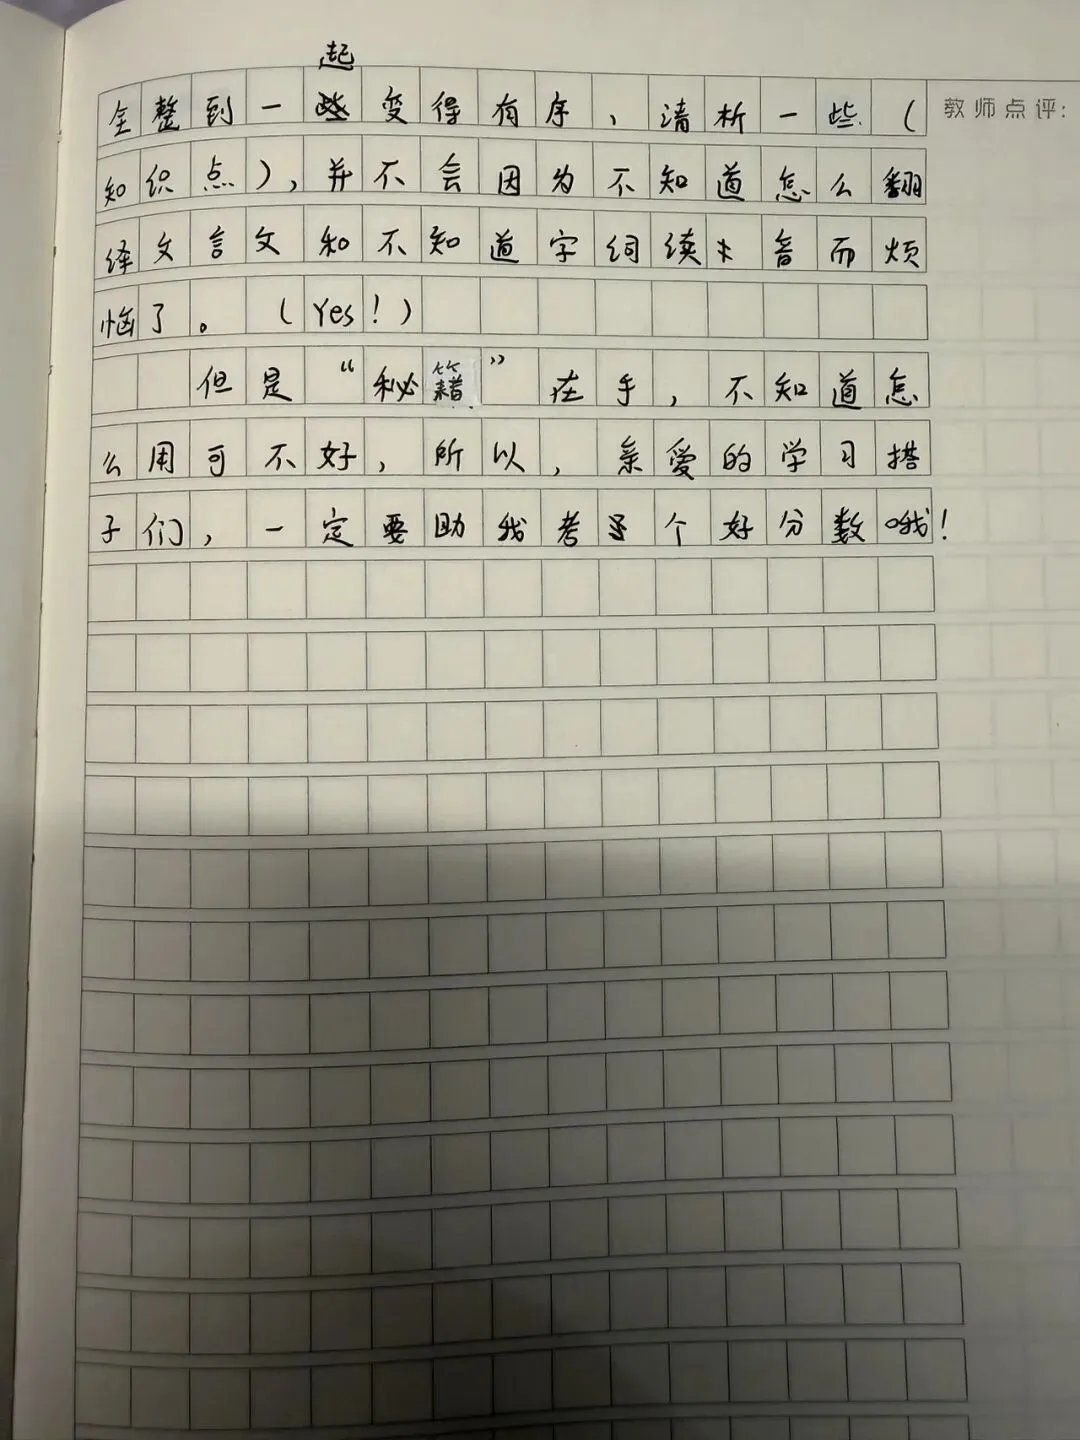 起
全整到一些变得有序、清析一些(
知识点),并不会因为不知道怎么翻
译文言文和不知道字词读音而烦
恼了。(Yes!)
但是“秘籍”在手,不知道怎
么用可不好,所以,亲爱的学习搭
子们,一定要助我考个好分数哦!
教师点评: